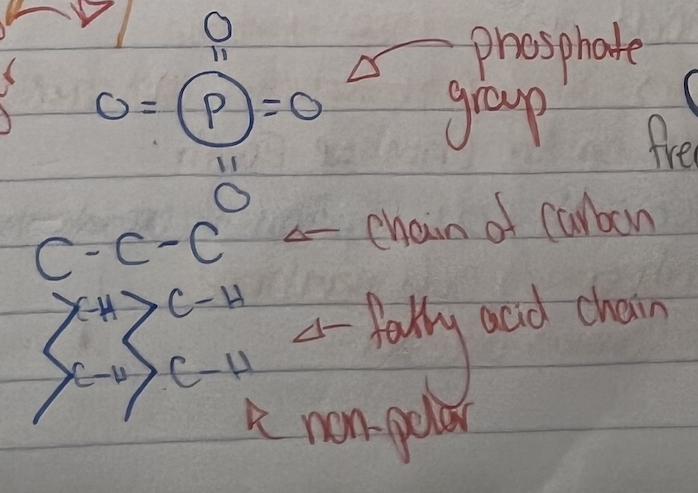 O
=
O = P = O
=
O
phosphate
group
free
C - C - C
chain of carbon
C-H C-H
C-H C-H
fatty acid chain
non-polar